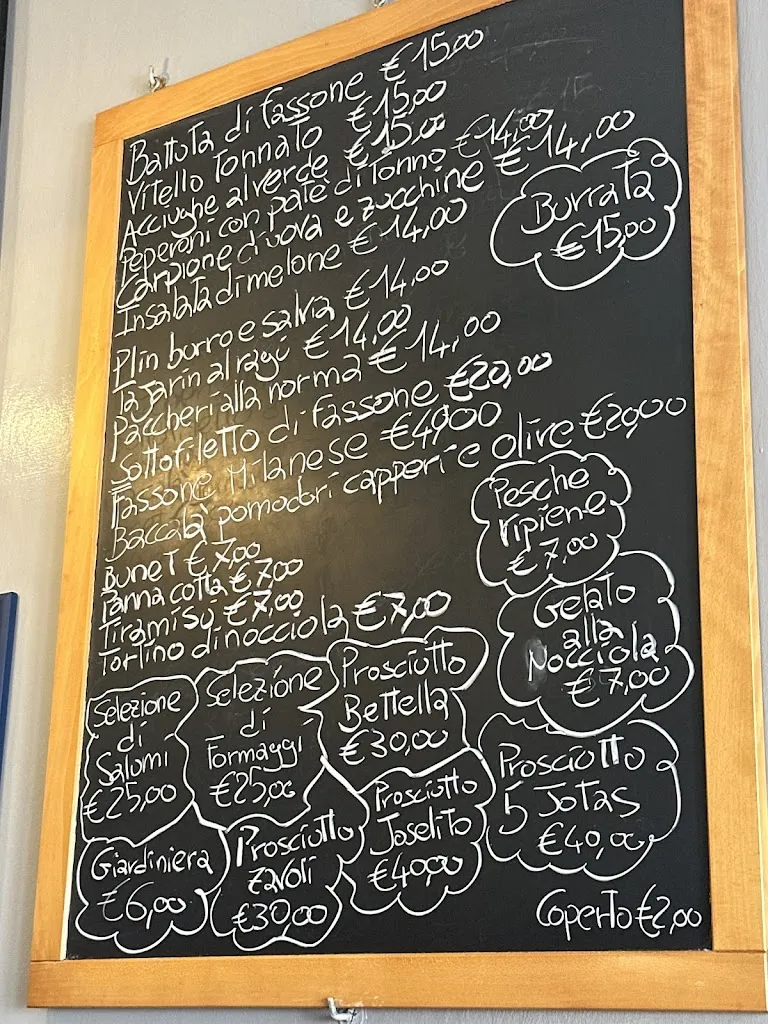 Battuta di fassone €15,00
Vitello Tonnato €15,00
Acciughe al verde €15,00
Peperoni con patè di Tonno €14,00
Carpione d'uova e zucchine €14,00
Insalata di melone €14,00
Burrata
€15,00
Plin burro e salvia €14,00
Tajarin al ragù €14,00
Paccheri alla norma €14,00
Sottofiletto di fassone €20,00
Fassone Milanese €
Baccalà pomodori capperi e olive €20,00
Bunet €7,00
Panna cotta €7,00
Tiramisù €7,00
Tortino di nocciola €7,00
Pesche
ripiene
€7,00
Gelato
alla
Nocciola
€7,00
Selezione
di
Salumi
€25,00
Selezione
di
Formaggi
€25,00
Prosciutto
Bettella
€30,00
Prosciutto
5 Jotas
€40,00
Giardiniera
€6,00
Prosciutto
zavoli
€30,00
Prosciutto
Joselito
€40,00
Coperto €2,00